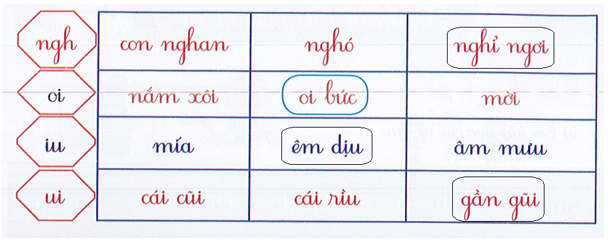 ngh con nghan nghó nghỉ ngơi
oi nắm xôi oi bức mời
iu mía êm dịu âm mưu
ui cái cũi cái rìu gần gũi